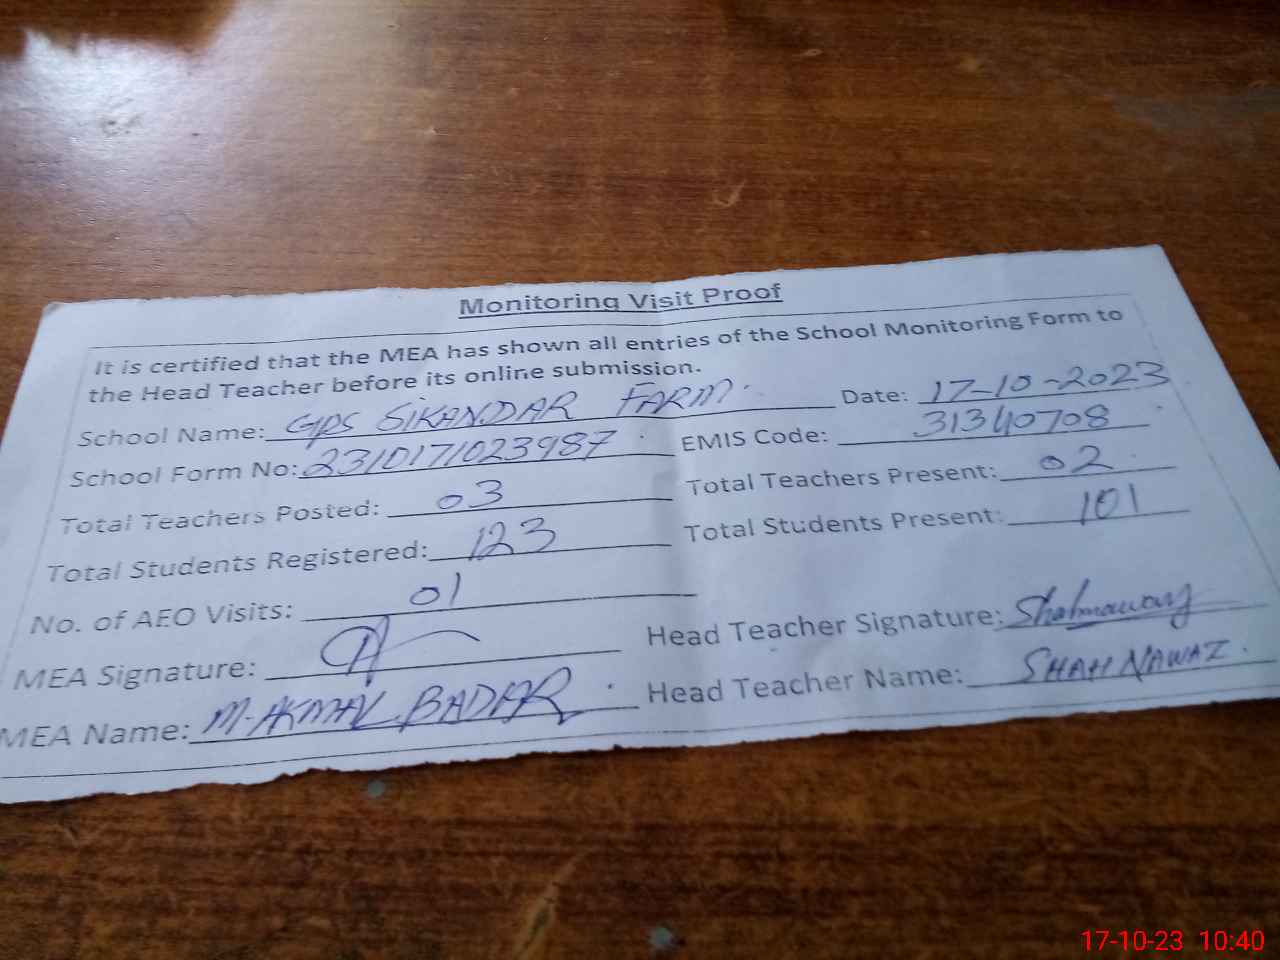 Monitoring Visit Proof
It is certified that the MEA has shown all entries of the School Monitoring Form to
the Head Teacher before its online submission.
School Name: GPS SIKANDAR FARM. Date: 17-10-2023
School Form No: 2310171023987 EMIS Code: 31340708
Total Teachers Posted: 03 Total Teachers Present: 02
Total Students Registered: 123 Total Students Present: 101
No. of AEO Visits: 01
MEA Signature: Head Teacher Signature: Shahnawaz
MEA Name: M. AKMAL BADAR Head Teacher Name: SHAH NAWAZ.
17-10-23 10:40